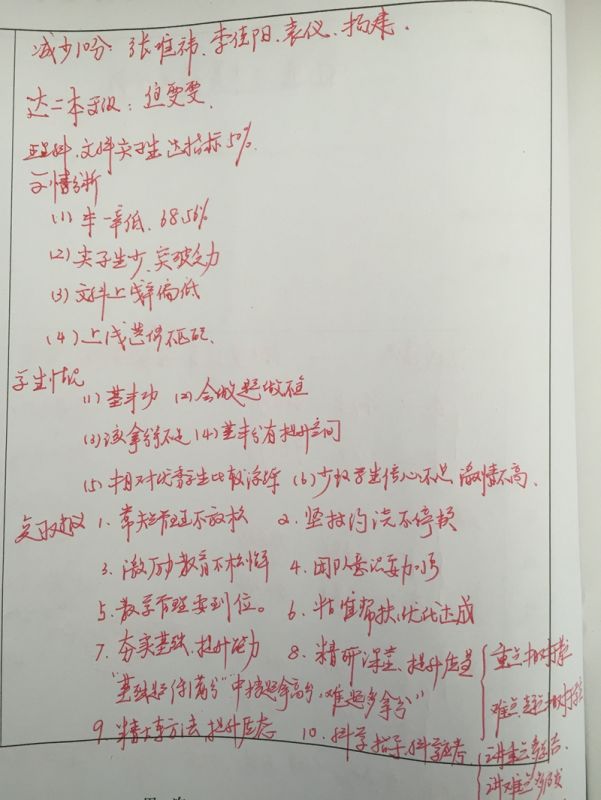 减少10分：张维祎、李佳阳、袁仪、杨建.
达二本百级：但雯雯.
理科、文科尖子生达指标50%.
考情分析
(1) 本一率低、68.56%
(2) 尖子生少、突破乏力
(3) 文科上线率偏低
(4) 上线总体不匹配.
学生情况
(1) 基本功 (2) 会做题做不全
(3) 该拿分不足 (4) 基本分有提升空间
(5) 相对优秀学生比较浮躁 (6) 少数学生信心不足 激情不高、
复习建议 1、常规管理不放松 2. 坚持约浇不停顿
3、激励教育不松懈 4、团队意识要加强
5、教学管理要到位。 6、精准帮扶、优化达成
7、夯实基础、提升能力 8、精研课堂、提升质量 重点相对撑
“基础题得满分”“中档题拿高分、难题多拿分” 难点
9、精方法、提升应考 10、科学指导、科学应考 讲重点
讲难点